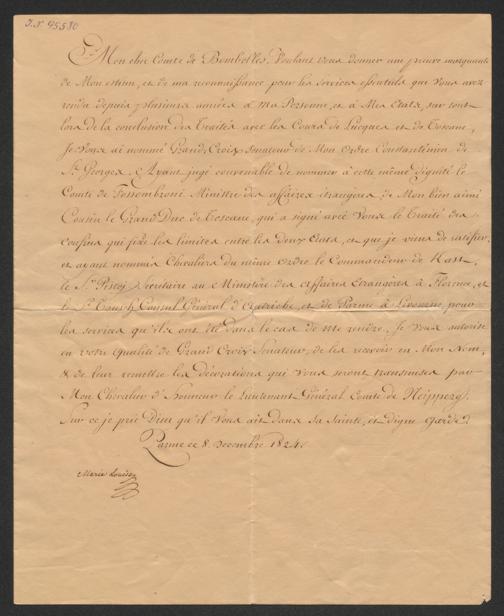 I.N 95580
Mon cher Comte de Bombelles. Voulant vous donner une preuve marquante
de Mon estime, et de ma reconnaissance pour les services essentiels que vous avez
rendu depuis plusieurs années à Ma Personne, et à Mes Etats, sur tout
lors de la conclusion des Traités avec les Cours de Lucques et de Toscane,
Je vous ai nommé Grand Croix Senateur de Mon Ordre Constantinien de
St. Georges, & Ayant jugé convenable de nommer à cette même dignité le
Comte de Fossombroni Ministre des affaires étrangères de Mon bien aimé
Cousin le Grand Duc de Toscane, qui a signé avec Vous le Traité des
Confins qui fixe les limites entre les deux Etats, et que je viens de ratifier,
et ayant nommés Chevaliers du même Ordre le Commandeur de
le Sr. Secrétaire au Ministère des Affaires Etrangères à Florence, et
le Sr. Consul Général d'Autriche, et de Parme à Livourne, pour
les services qu'ils ont été dans le cas de me rendre, Je Vous autorise
en votre qualité de Grand Croix Senateur, de les recevoir en Mon Nom,
& de leur remettre les décorations qui Vous seront transmises par
Mon Chevalier d'honneur le Lieutenant Général Comte de Neipperg.
Sur ce je prie Dieu qu'il Vous ait dans sa Sainte, et digne Garde.
Parme ce 8 Decembre 1824.
Marie Louise